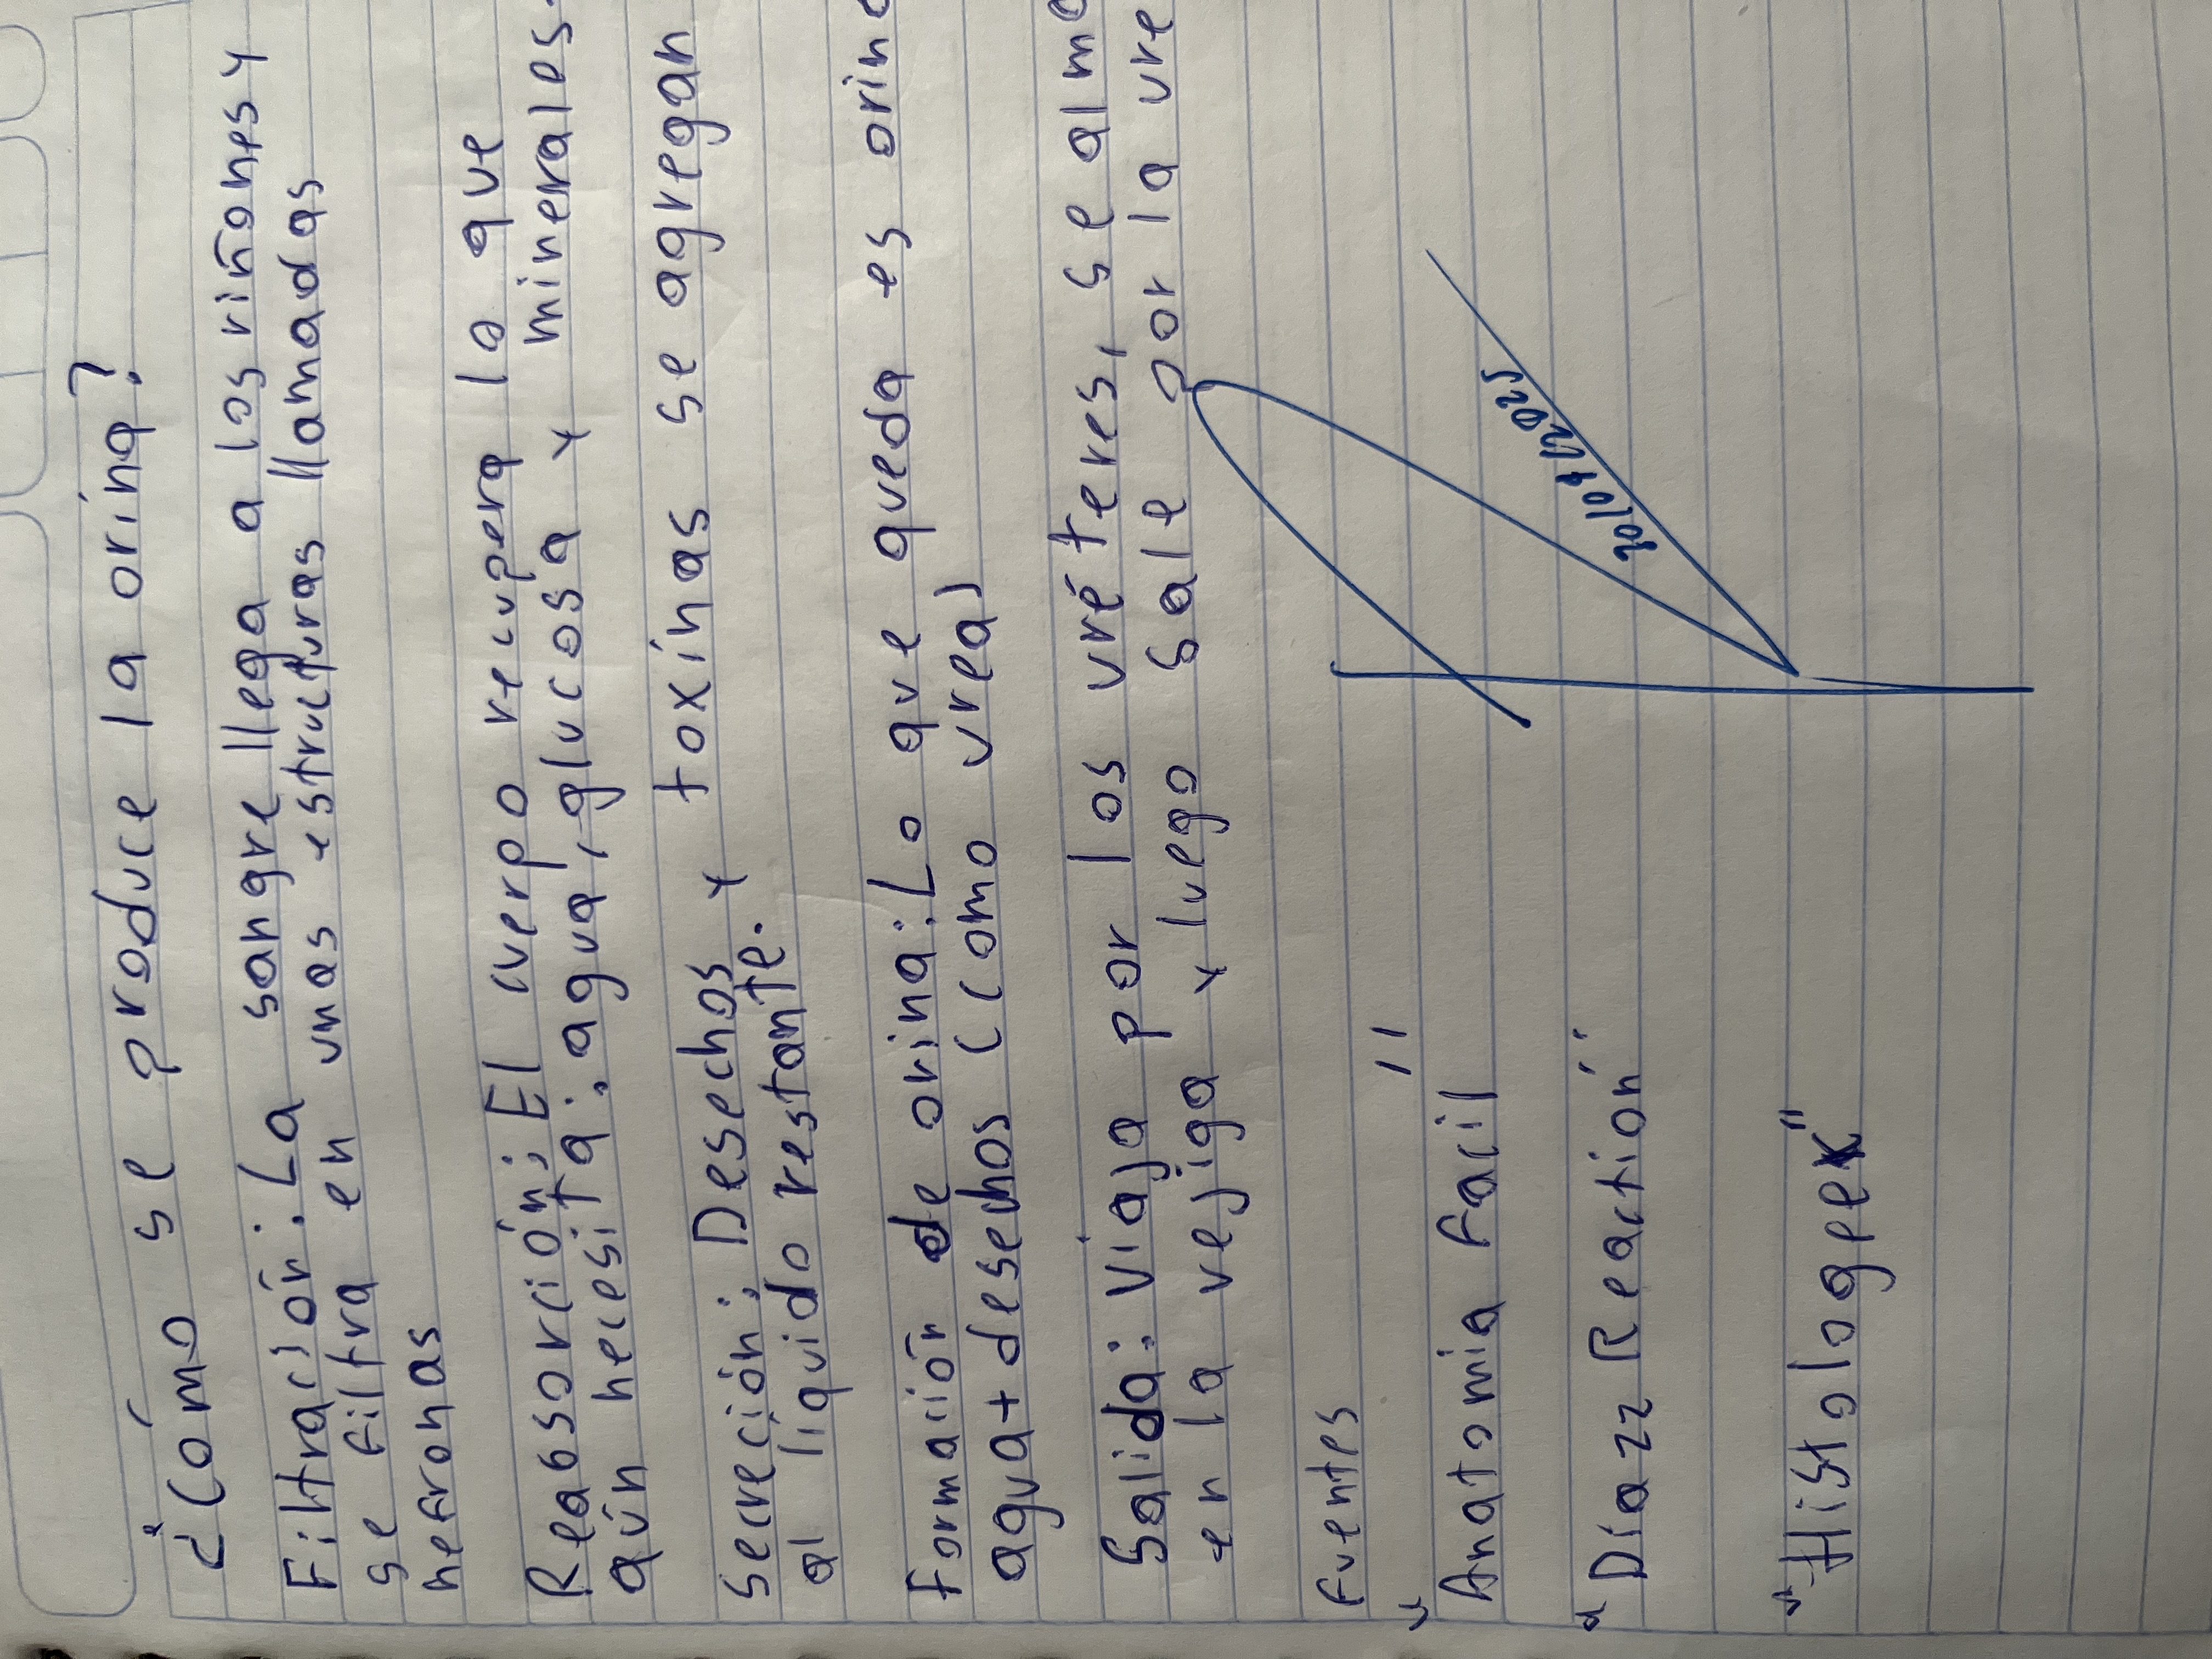 ¿Cómo se produce la orina?
Filtración: La sangre llega a los riñones y
se filtra en unas estructuras llamadas
nefronas
Reabsorción: El cuerpo recupera lo que
aún necesita: agua, glucosa y minerales.
Secreción: Desechos y toxinas se agregan
al líquido restante.
Formación de orina: Lo que queda es orin
agua + desechos (como urea)
Salida: Viaja por los uréteres, se alm
en la vejiga y luego sale por la ure
Fuentes
"Anatomia Facil"
"Díazz Reaction"
"Histologeek"